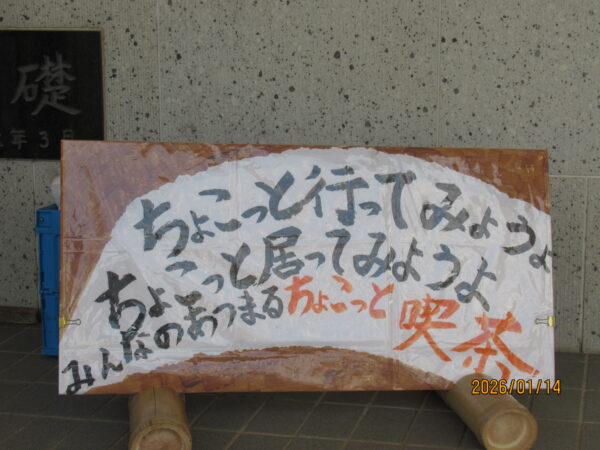 礎
年3月
ちょこっと行ってみようよ
ちょこっと居ってみようよ
みんなのあつまるちょこっと喫茶
2026/01/14